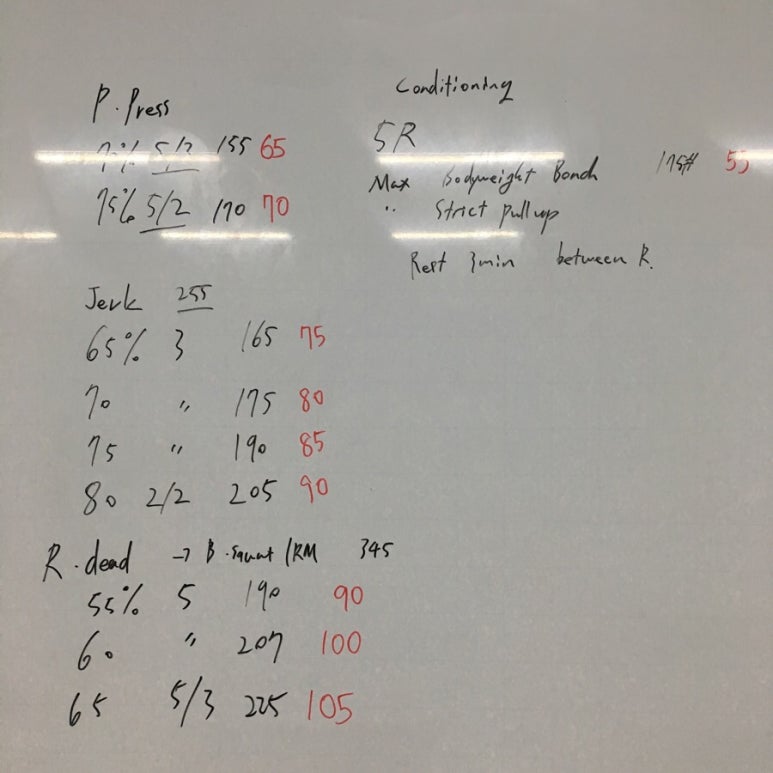 P.Press
5/2 155 65
75% 5/2 170 70
Jerk 255
65% 3 165 75
70 〃 175 80
75 〃 190 85
80 2/2 205 90
R.dead → B.squat 1RM 345
55% 5 190 90
60 〃 207 100
65 5/3 225 105
Conditioning
5R
Max Bodyweight Bench 175# 55
〃 Strict pull up
Rest 3min between R.